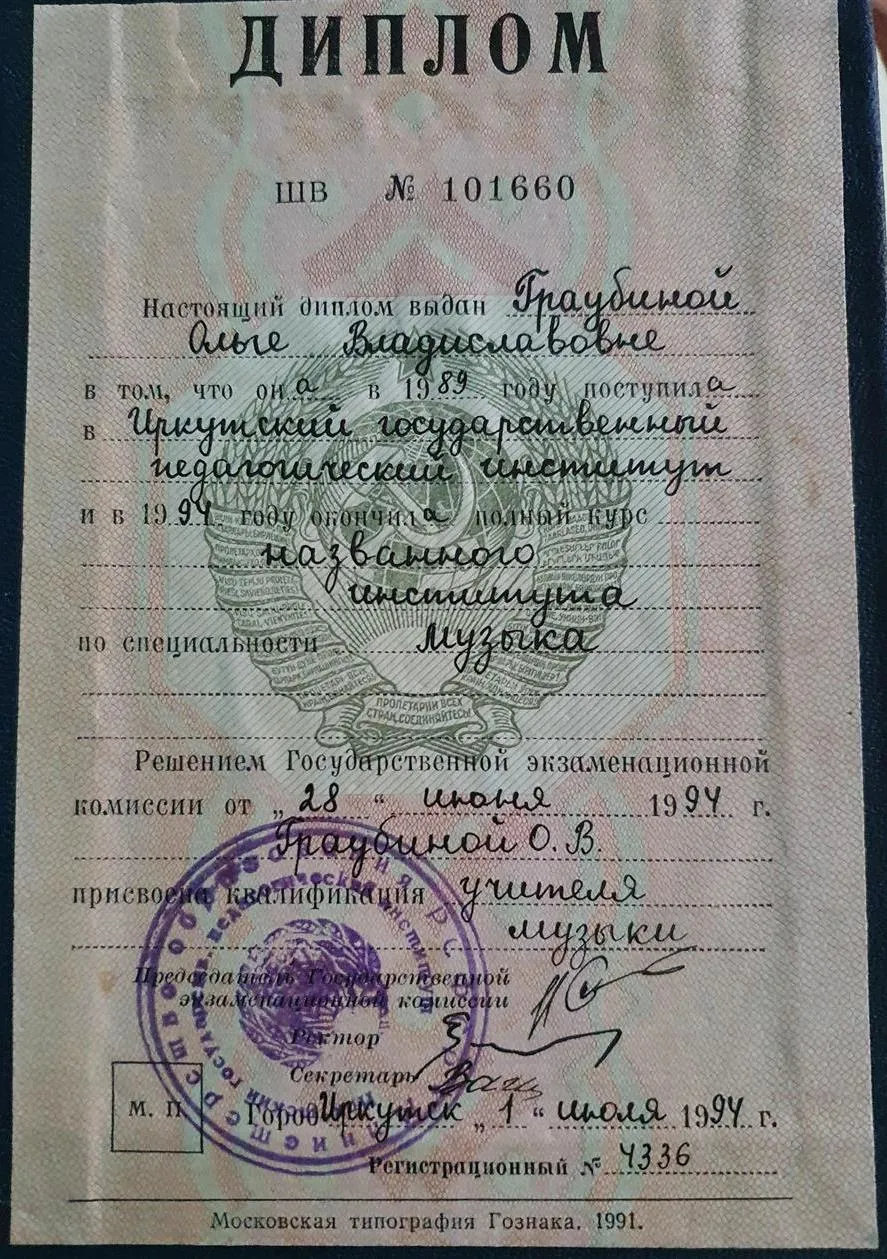 ДИПЛОМ
ШВ № 101660
Настоящий диплом выдан Граубиной
Ольге Владиславовне
в том, что она в 1989 году поступила
в Иркутский государственный
педагогический институт
и в 1994 году окончила полный курс
названного
института
по специальности музыка
ПРОЛЕТАРИИ ВСЕХ
СТРАН, СОЕДИНЯЙТЕСЬ!
Решением Государственной экзаменационной
комиссии от „28“ июня 1994 г.
Граубиной О. В.
присвоена квалификация учителя
музыки
Председатель Государственной
экзаменационной комиссии
Ректор
Секретарь
М. П. Город Иркутск „1“ июля 1994 г.
Регистрационный № 4336
Московская типография Гознака. 1991.